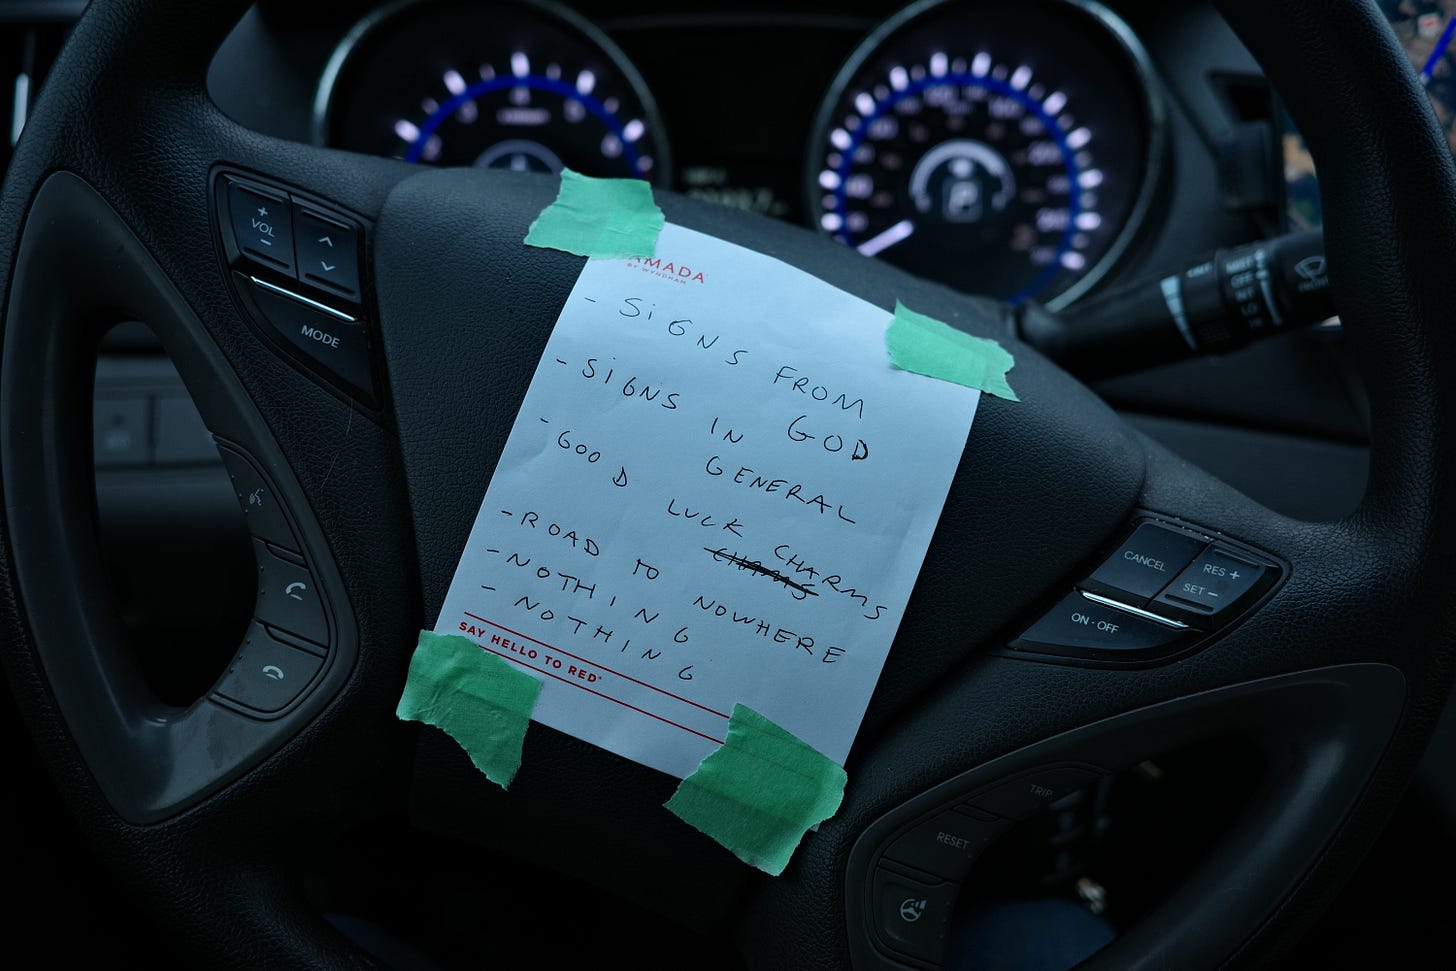 AMADA
BY WYNDHAM
- SIGNS FROM GOD
- SIGNS IN GENERAL
- GOOD LUCK CHARMS
- ROAD TO NOWHERE
- NOTHING
- NOTHING
SAY HELLO TO RED®
+
VOL
-
MODE
CANCEL
RES +
SET -
ON·OFF
TRIP
RESET
P
OFF